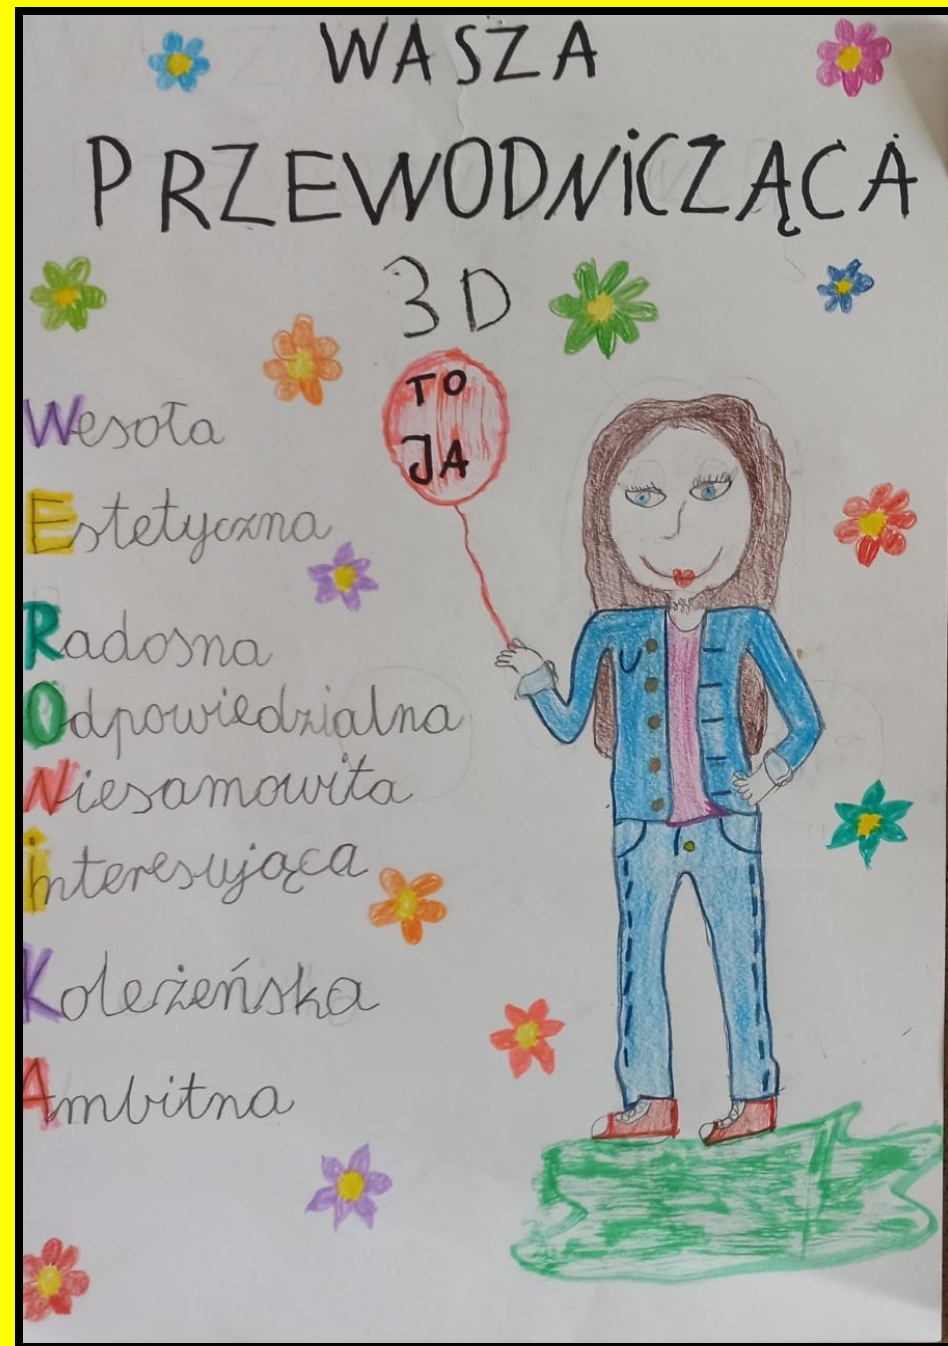 WASZA
PRZEWODNiCZĄCA
3D
TO
JA
Wesoła
Estetyczna
Radosna
Odpowiedzialna
Niesamowita
interesująca
Koleżeńska
Ambitna